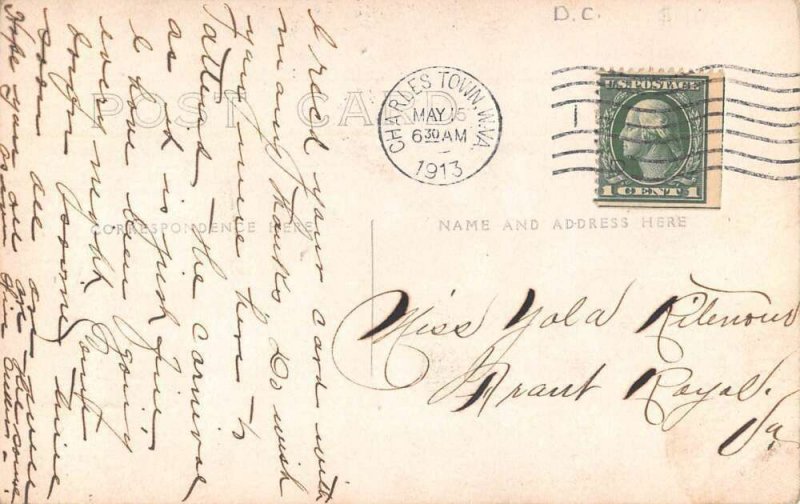 D. C.
POST CARD
CHARLES TOWN, W. VA.
MAY 15
6 30 AM
1913
U.S. POSTAGE
1 CENT 1
CORRESPONDENCE HERE
NAME AND ADDRESS HERE
Miss Yola Ritenour
Front Royal.
Va
I rec'd your card with
many thanks, Do wish
you were here to
attend the carnival
as it is just fine,
I have been going
every night. Don't
soon
Hope you are